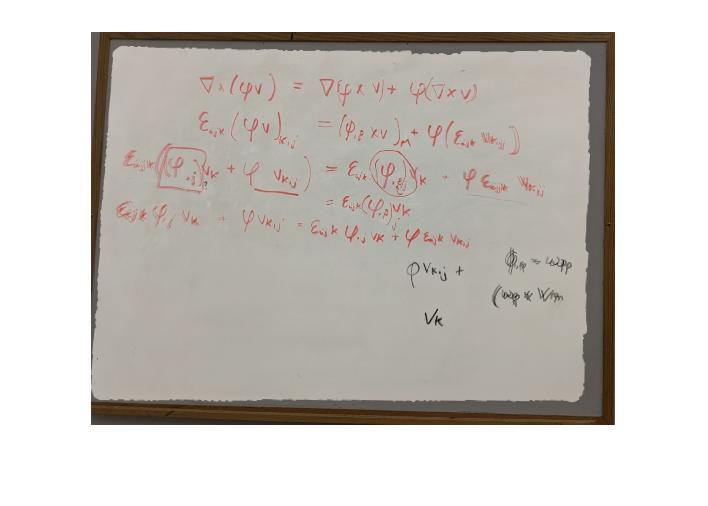 ∇×(φv) = ∇(φ × v) + φ(∇×v)
ε_ijk (φv)_k,j = (φ,p × v)_m + φ(ε_ijk v_k,j)
ε_ijk((φ,j) v_k + φ v_k,j) = ε_ijk (φ,j) v_k + φ ε_ijk v_k,j
= ε_ijk(φ,p)_j v_k
ε_ijk φ,j v_k + φ v_k,j = ε_ijk φ,j v_k + φ ε_ijk v_k,j
φ v_k,j +
v_k